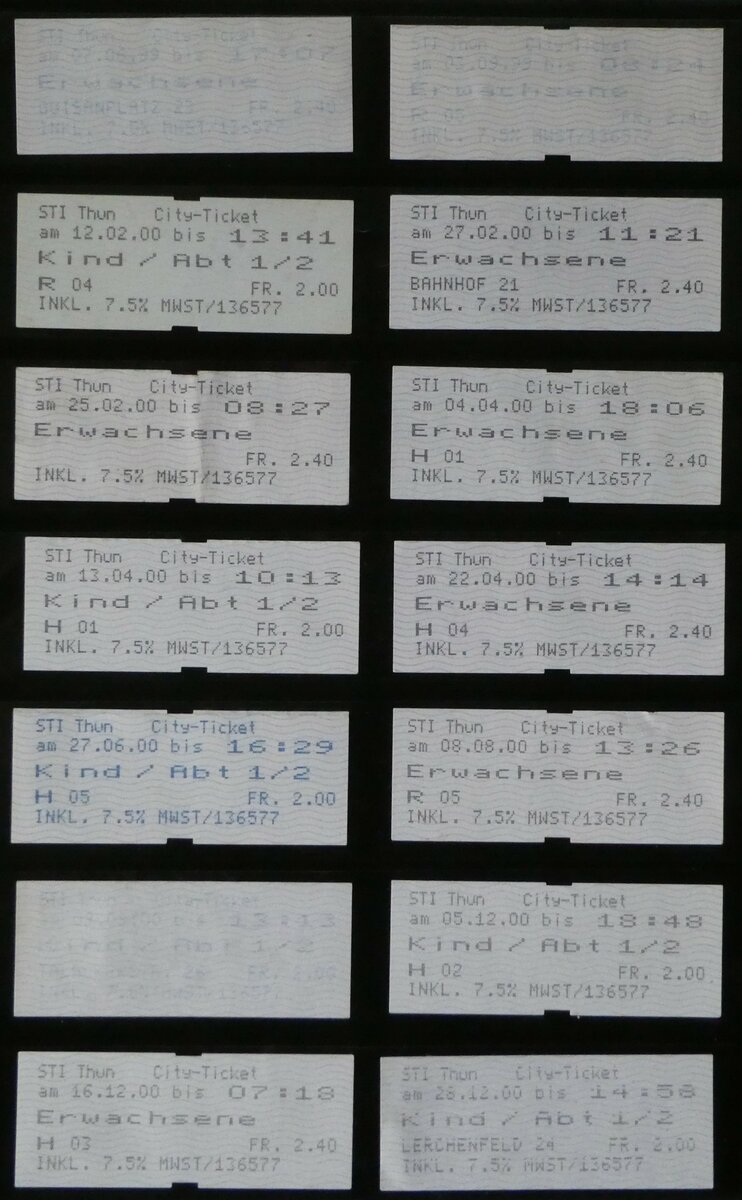 STI Thun City-Ticket
17:07
Erwachsene
GUISANPLATZ 23 FR. 2.40
INKL. 7.5% MWST/136577
STI Thun City-Ticket
am 03.09.99 bis 08:24
Erwachsene
R 05 FR. 2.40
INKL. 7.5% MWST/136577
STI Thun City-Ticket
am 12.02.00 bis 13:41
Kind / Abt 1/2
R 04 FR. 2.00
INKL. 7.5% MWST/136577
STI Thun City-Ticket
am 27.02.00 bis 11:21
Erwachsene
BAHNHOF 21 FR. 2.40
INKL. 7.5% MWST/136577
STI Thun City-Ticket
am 25.02.00 bis 08:27
Erwachsene
FR. 2.40
INKL. 7.5% MWST/136577
STI Thun City-Ticket
am 04.04.00 bis 18:06
Erwachsene
H 01 FR. 2.40
INKL. 7.5% MWST/136577
STI Thun City-Ticket
am 13.04.00 bis 10:13
Kind / Abt 1/2
H 01 FR. 2.00
INKL. 7.5% MWST/136577
STI Thun City-Ticket
am 22.04.00 bis 14:14
Erwachsene
H 04 FR. 2.40
INKL. 7.5% MWST/136577
STI Thun City-Ticket
am 27.06.00 bis 16:29
Kind / Abt 1/2
H 05 FR. 2.00
INKL. 7.5% MWST/136577
STI Thun City-Ticket
am 08.08.00 bis 13:26
Erwachsene
R 05 FR. 2.40
INKL. 7.5% MWST/136577
STI Thun
13:13
Kind / Abt 1/2
FR. 2.00
INKL. 7.5% MWST/136577
STI Thun City-Ticket
am 05.12.00 bis 18:48
Kind / Abt 1/2
H 02 FR. 2.00
INKL. 7.5% MWST/136577
STI Thun City-Ticket
am 16.12.00 bis 07:18
Erwachsene
H 03 FR. 2.40
INKL. 7.5% MWST/136577
STI Thun City-Ticket
am 28.12.00 bis 14:58
Kind / Abt 1/2
LERCHENFELD 24 FR. 2.00
INKL. 7.5% MWST/136577